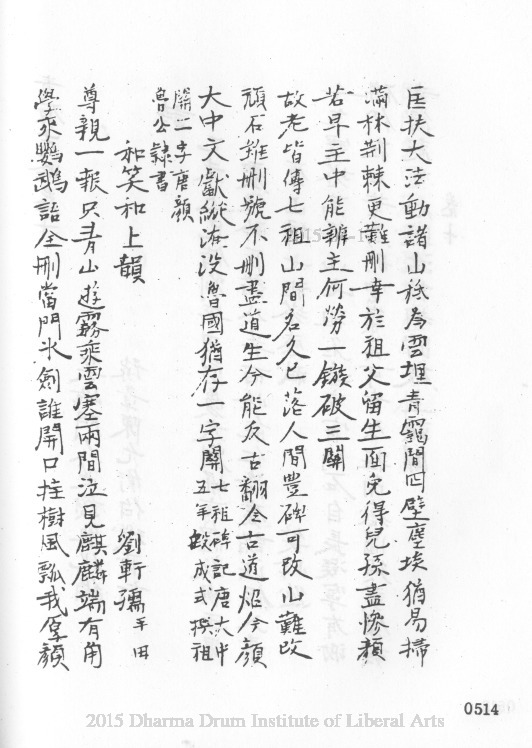 匡扶大法動諸山祗為雲埋青靄間四壁塵埃猶易掃
滿林荆棘更難刪幸於祖父留生面免得兒孫盡慘顏
若早主中能辨主何勞一鏃破三關
故老皆傳七祖山間名久已落人間豐碑可改山難改
頑石雖刪號不刪盡道生今能反古翻令古道炤今顏
大中文獻縱湮没魯國猶存一字關七祖碑記唐大中五年段成式撰祖
關二字唐顏魯公隸書
和笑和上韻
劉軒孺平田
尊親一報只青山遊霧乘雲塞兩間泣見麒麟端有角
學來鸚鵡語全刪當門氷劍誰開口挂樹風瓢我厚顏
0514
2015 Dharma Drum Institute of Liberal Arts